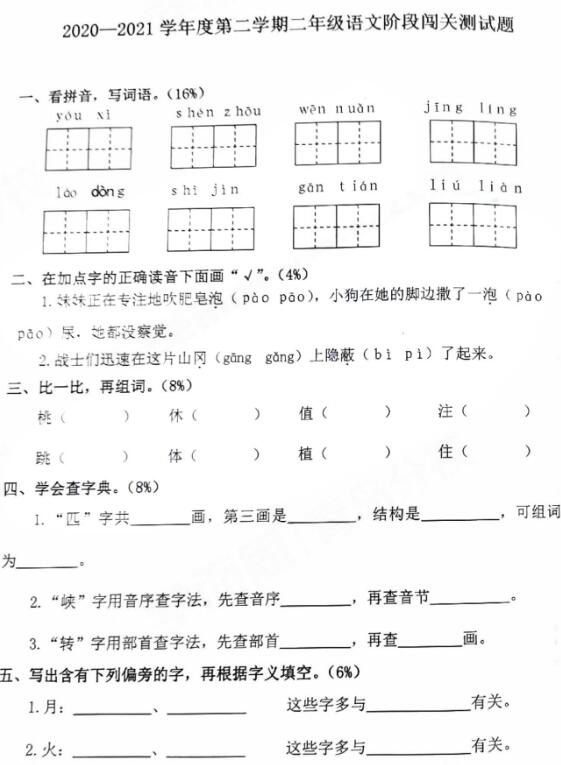 2020—2021 学年度第二学期二年级语文阶段闯关测试题
一、看拼音，写词语。（16%）
yóu xì shén zhōu wēn nuǎn jīng líng
láo dòng shí jìn gān tián liú liàn
二、在加点字的正确读音下面画“√”。（4%）
1. 妹妹正在专注地吹肥皂泡（pào pāo），小狗在她的脚边撒了一泡（pào
pāo）尿，她都没察觉。
2. 战士们迅速在这片山冈（gāng gǎng）上隐蔽（bì pì）了起来。
三、比一比，再组词。（8%）
桃（ ） 休（ ） 值（ ） 注（ ）
跳（ ） 体（ ） 植（ ） 住（ ）
四、学会查字典。（8%）
1. “匹”字共______画，第三画是________，结构是_________，可组词
为_______。
2. “峡”字用音序查字法，先查音序________，再查音节_________。
3. “转”字用部首查字法，先查部首________，再查_______画。
五、写出含有下列偏旁的字，再根据字义填空。（6%）
1. 月：_________、_________ 这些字多与____________有关。
2. 火：_________、_________ 这些字多与____________有关。